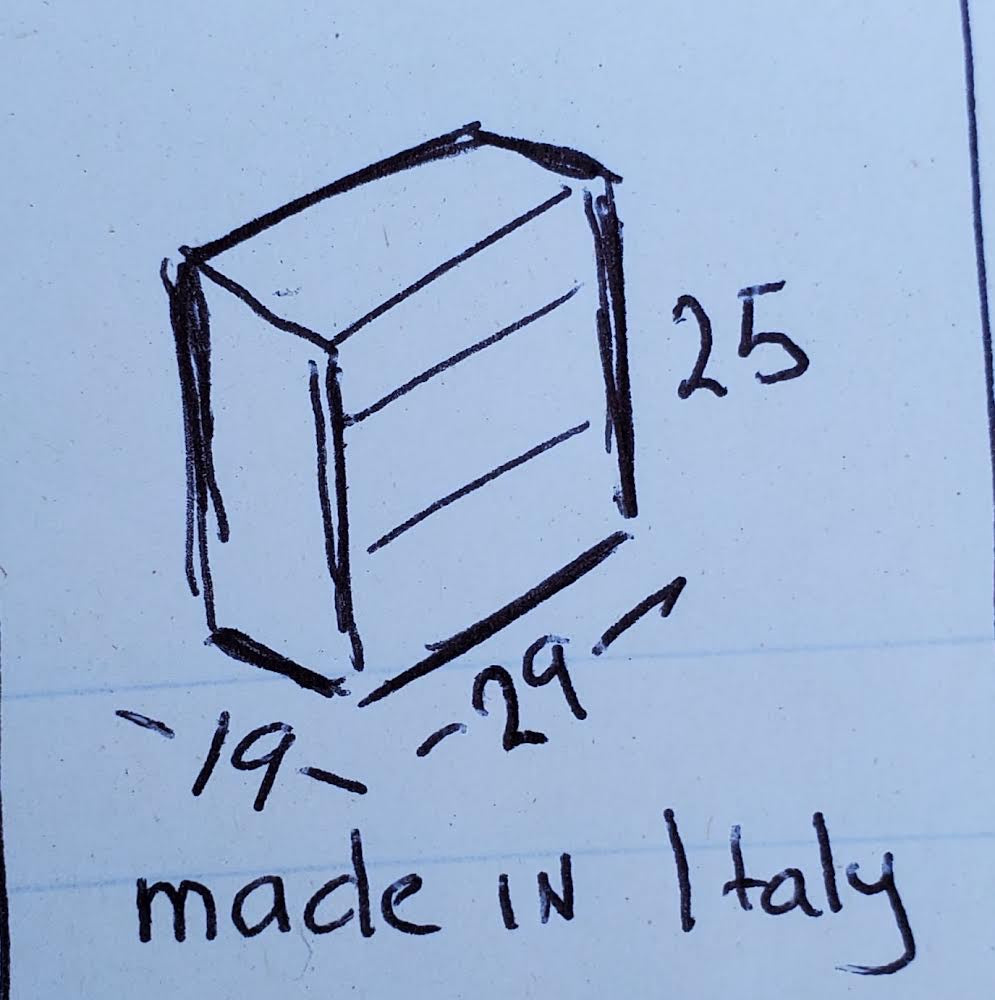 25
29
19
made IN Italy